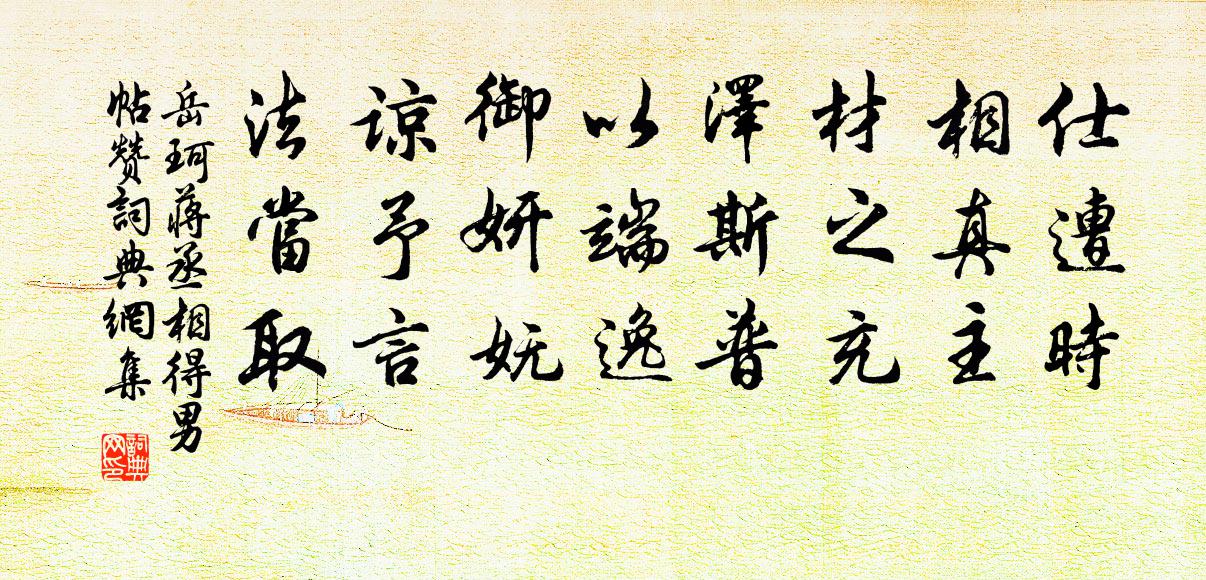 仕遭時
相真主
材之充
澤斯普
以端逸
御妍妩
諒予言
法當取
岳珂蔣丞相得男
帖赞詞典網集
詞典网印